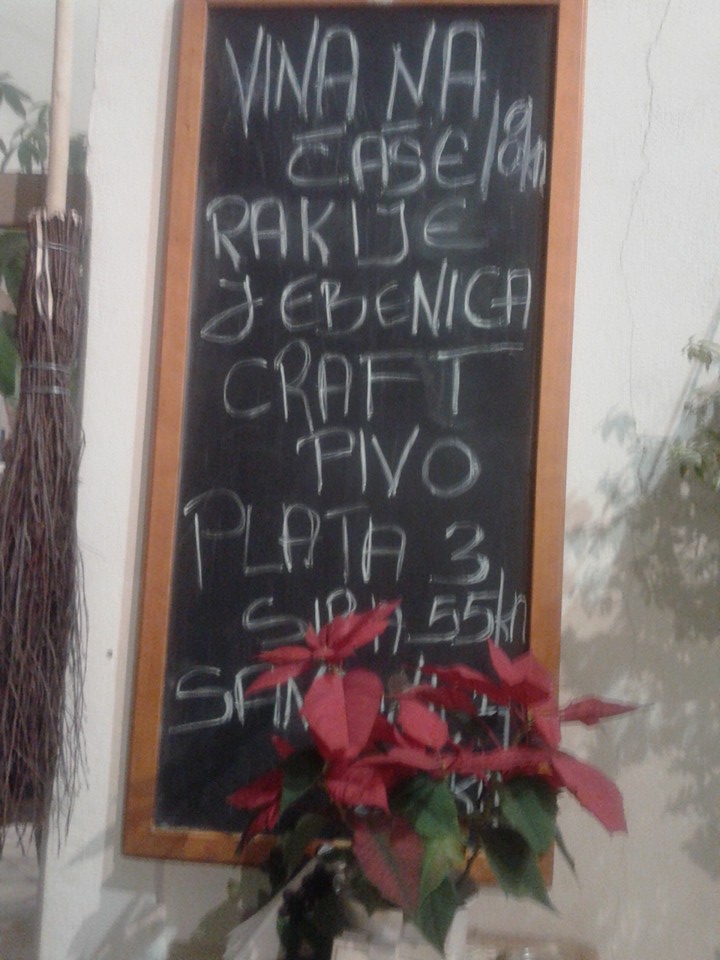 VINA NA
ČAŠE/18kn
RAKIJE
JEBENICA
CRAFT
PIVO
PLATA 3
SIRA 55kn
kn